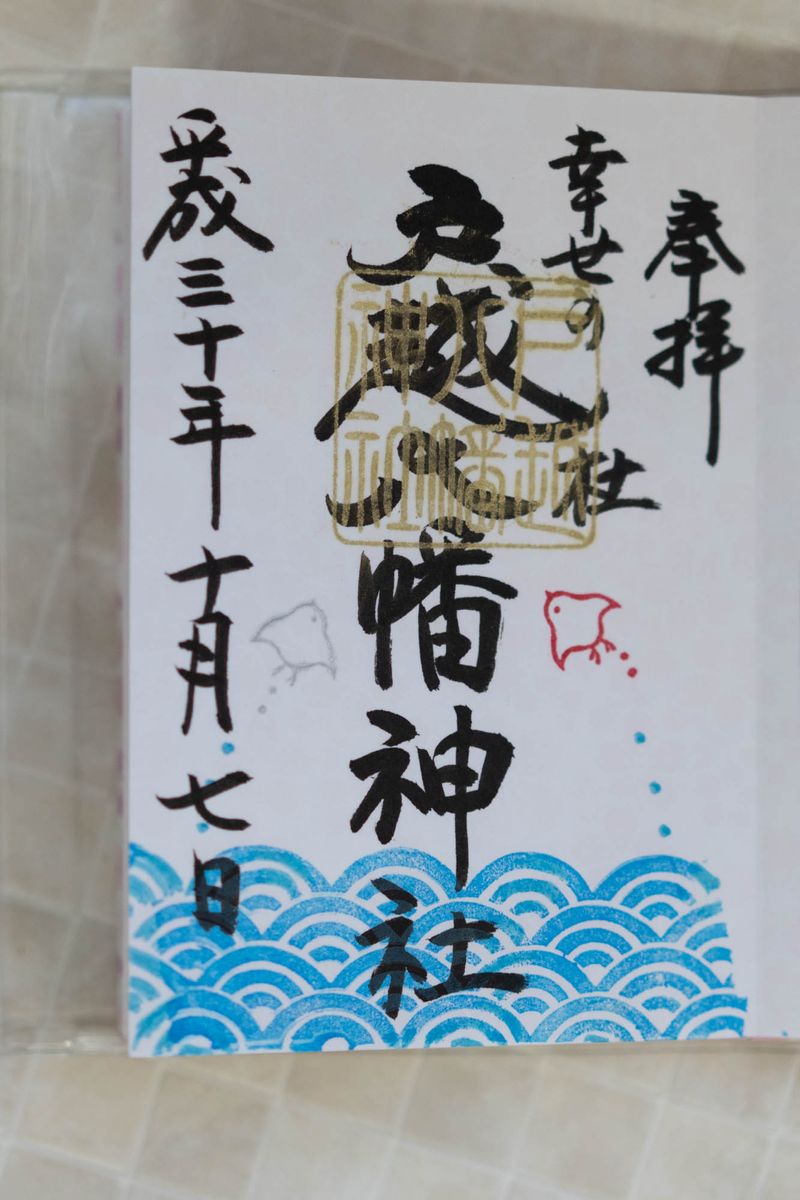 奉拝
幸せの社
戸越八幡神社
戸越
八幡
神社
平成三十年十月七日